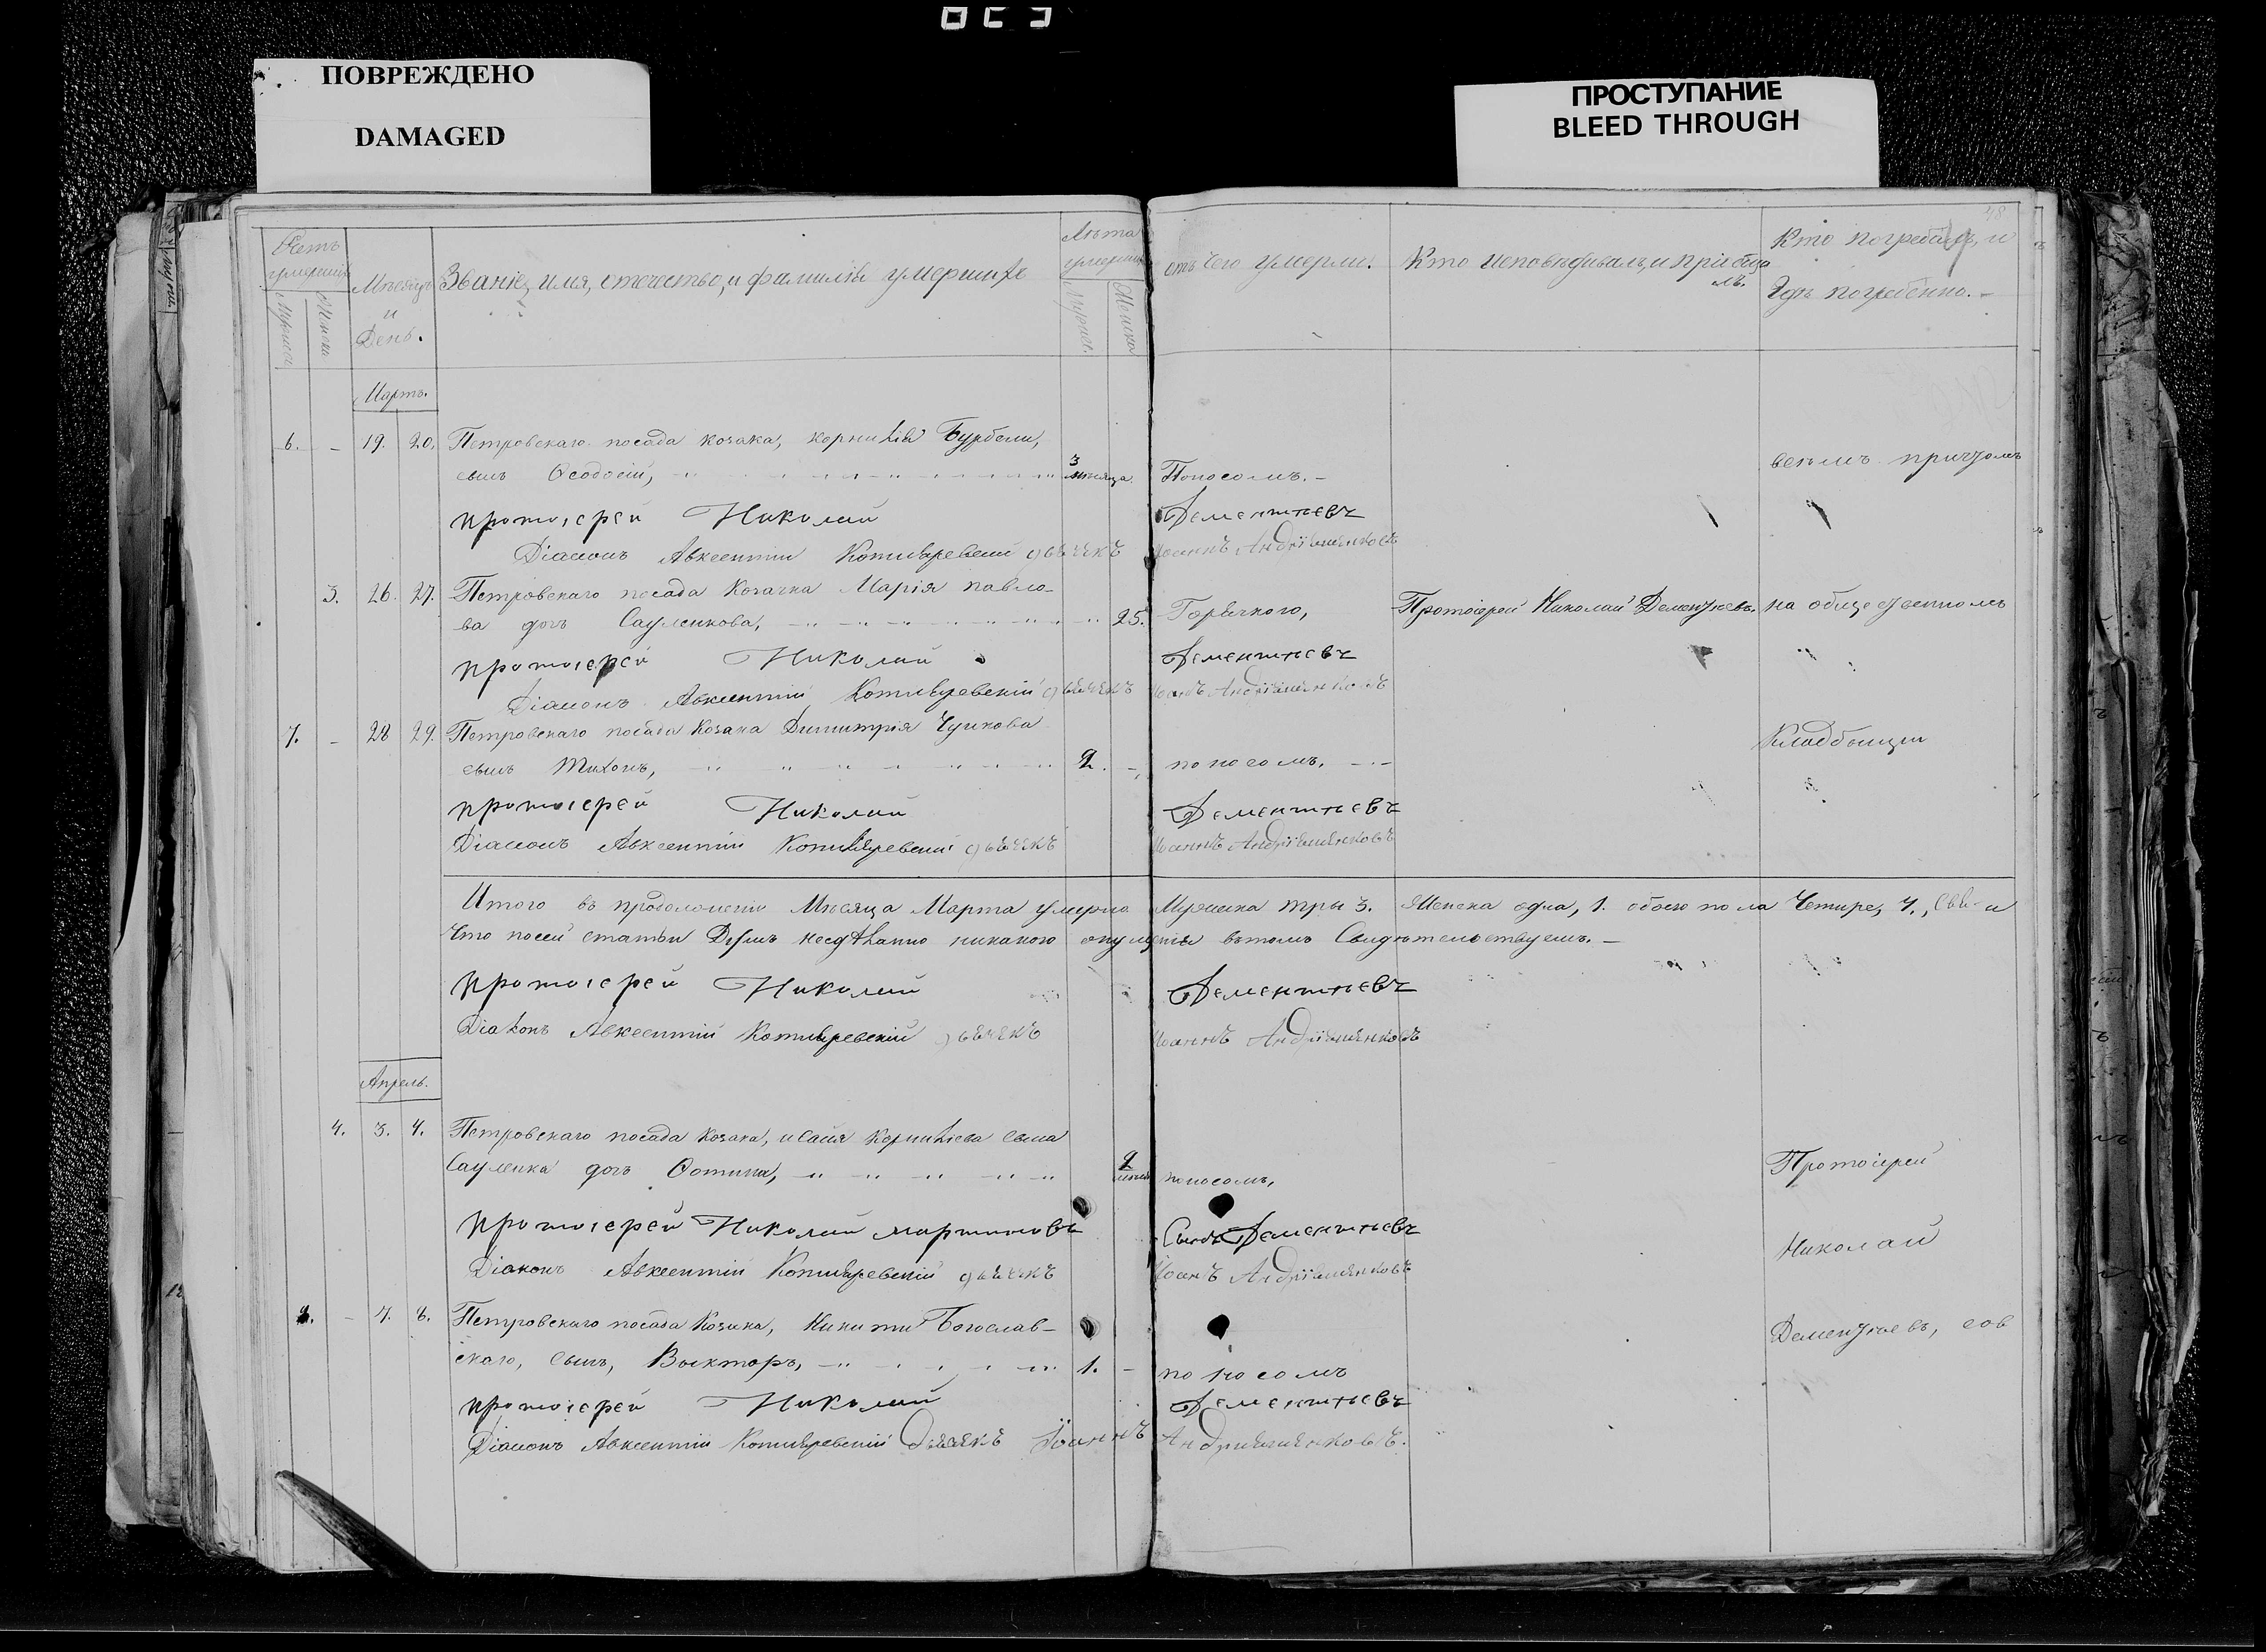 ПОВРЕЖДЕНО
DAMAGED
ПРОСТУПАНИЕ
BLEED THROUGH
48
Счетъ умершихъ
Мужеска
Женска
Мѣсяцъ и День.
Званіе, имя, отечество, и фамилія умершихъ
Лѣта умерших
Мужес.
Женска
отъ чего умерли.
Кто исповѣдывалъ, и пріобщалъ.
Кто погребалъ, и
Гдѣ погребенно.
Мартъ.
6. - 19. 20. Петровскаго посада козака, корнилія Бурбели,
сынъ Ѳеодосій, 3 мѣсяца. Поносомъ. - всѣмъ причтомъ
протоіерей Николай Дементіевъ
Діаконъ Авксентій Котляревскій дьячекъ Іоаннъ Андріяшенковъ
3. 26. 27. Петровскаго посада Козачка Марія павло-
ва дочь Сауленкова, 25. Горячкою, Протоіерей Николай Дементьевъ. на общественномъ
протоіерей Николай Дементіевъ
Діаконъ Авксентій Котляревскій дьячекъ Іоанъ Андріяшенковъ
7. - 28 29. Петровскаго посада Козака Димитрія Чуикова
сынъ Тихонъ, 2. - поносомъ. Кладбищи
протоіерей Николай Дементіевъ
Діаконъ Авксентій Котляревскій дьячекъ Іоаннъ Андріяшенковъ
Итого въ продолженіи Мѣсяца Марта умерло Мужеска тры 3. Женска одна, 1. обоего пола Четире, 4.,
Что посей статьи несдѣланно никакого опущенія вътомъ Свидѣтельствуемъ. -
протоіерей Николай Дементіевъ
Діаконъ Авксентій Котляревскій дьячекъ Іоаннъ Андріяшенковъ
Апрель.
4. 3. 4. Петровскаго посада Козака, исаія Корниліева сына
Сауленка дочь Фотина, 2 поносомъ, Протоіерей
протоіерей Николай мартиновъ Сынъ Дементіевъ
Николай
Діаконъ Авксентій Котляревскій дьячекъ Іоанъ Андріяшенковъ
8. - 7. 8. Петровскаго посада Козака, Никити Богослав-
Дементьевъ, сов
скаго, сынъ, Выкторъ, 1. - поносомъ
протоіерей Николай Дементіевъ
Діаконъ Авксентій Котляревскій Дьячекъ Іоаннъ Андріяшенковъ.